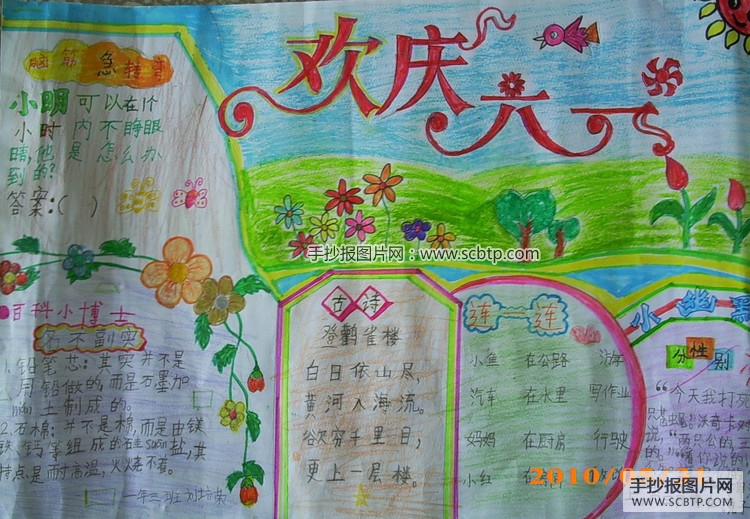 欢庆六一
脑筋急转弯
小明可以在1个
小时内不睁眼
睛,他是怎么办
到的?
答案:( )
手抄报图片网:www.scbtp.com
百科小博士
名不副实
1.铅笔芯:其实并不是
用铅做的,而是石墨加
土制成的。
2.石棉:并不是棉,而是由镁
铁、钙等组成的硅 盐,其
特点是耐高温,火烧不着。
一年三班
古诗
登鹳雀楼
白日依山尽,
黄河入海流。
欲穷千里目,
更上一层楼。
连一连
小鱼 在公路 游
汽车 在水里 写作业
妈妈 在厨房 行驶
小红
小幽默
分性别
“今天我打死
只苍虫
“两只公的三
说的。
2010/05/31
手抄报图片网
SCBTP.COM